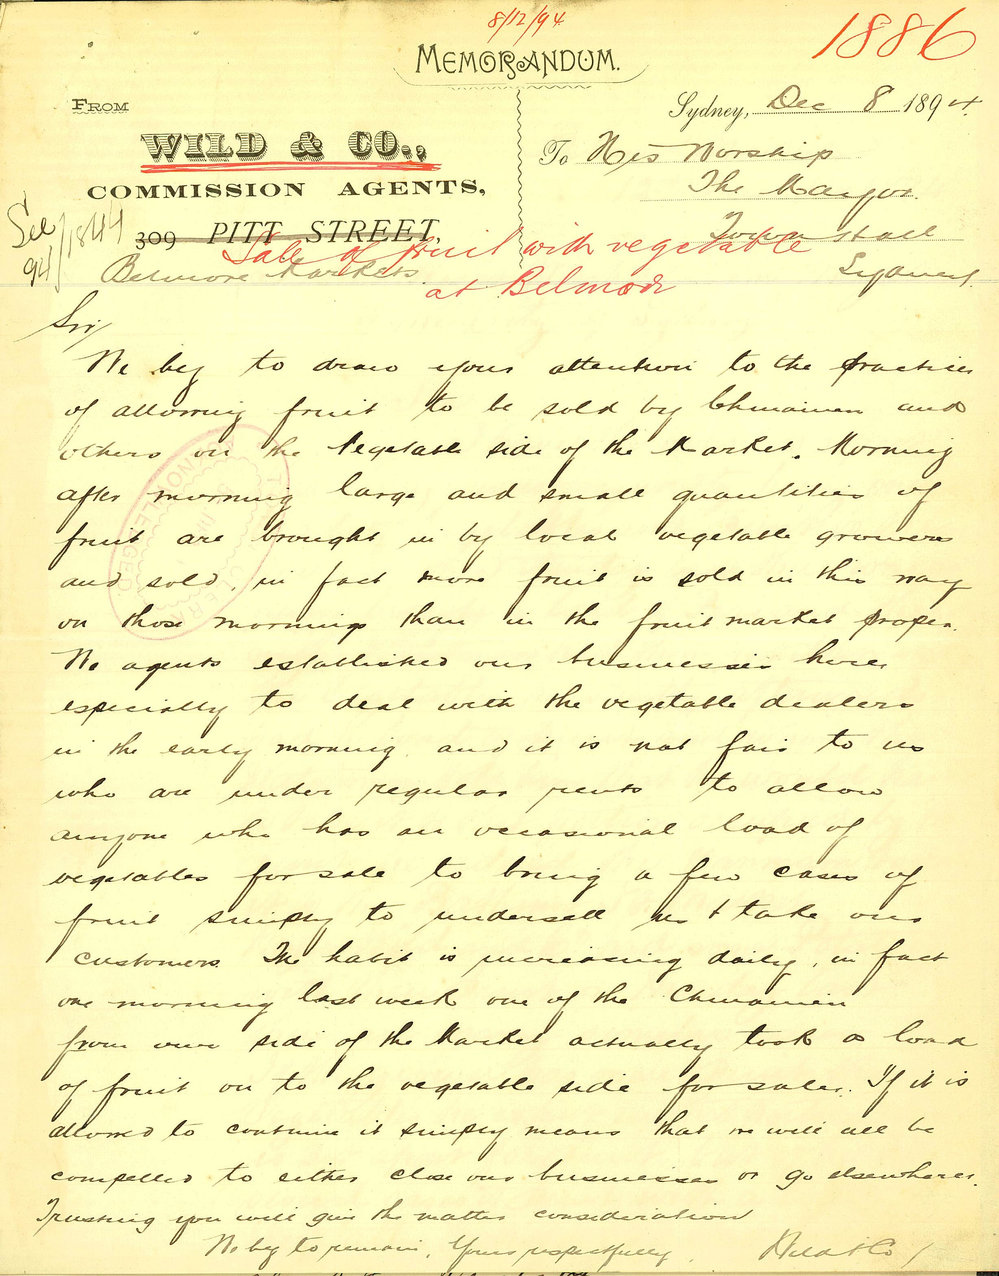 8/12/94
1886
MEMORANDUM.
FROM
Sydney, Dec 8 1894.
WILD & CO.,
COMMISSION AGENTS,
309 PITT STREET,
Belmore Markets
To His Worship
The Mayor
Town Hall
Sydney
See
94/1844
Sale of fruit with vegetable
at Belmore
Sir/
We beg to draw your attention to the practice
of allowing fruit to be sold by Chinamen and
others on the Vegetable side of the Market. Morning
after morning large and small quantities of
fruit are brought in by local vegetable growers
and sold, in fact more fruit is sold in this way
on those mornings than in the fruit market proper.
We agents established our businesses here
especially to deal with the vegetable dealers
in the early morning and it is not fair to us
who are under regular rents to allow
anyone who has an occasional load of
vegetables for sale to bring a few cases of
fruit simply to undersell us & take our
customers. The habit is increasing daily, in fact
one morning last week one of the Chinamen
from our side of the Market actually took a load
of fruit on to the vegetable side for sale. If it is
allowed to continue it simply means that we will all be
compelled to either close our businesses or go elsewhere.
Trusting you will give the matter consideration
We beg to remain, Yours respectfully, Wild & Co/